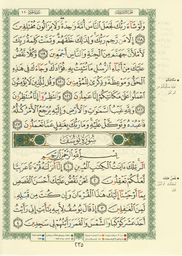 وَلَوْ شَآءَ رَبُّكَ لَجَعَلَ ٱلنَّاسَ أُمَّةً وَٰحِدَةً وَلَا يَزَالُونَ مُخْتَلِفِينَ ١١٨
إِلَّا مَن رَّحِمَ رَبُّكَ وَلِذَٰلِكَ خَلَقَهُمْ وَتَمَّتْ كَلِمَةُ رَبِّكَ
لَأَمْلَأَنَّ جَهَنَّمَ مِنَ ٱلْجِنَّةِ وَٱلنَّاسِ أَجْمَعِينَ ١١٩ وَكُلًّا نَّقُصُّ
عَلَيْكَ مِنْ أَنۢبَآءِ ٱلرُّسُلِ مَا نُثَبِّتُ بِهِۦ فُؤَادَكَ وَجَآءَكَ فِى هَٰذِهِ
ٱلْحَقُّ وَمَوْعِظَةٌ وَذِكْرَىٰ لِلْمُؤْمِنِينَ ١٢٠ وَقُل لِّلَّذِينَ لَا يُؤْمِنُونَ
ٱعْمَلُوا۟ عَلَىٰ مَكَانَتِكُمْ إِنَّا عَٰمِلُونَ ١٢١ وَٱنتَظِرُوٓا۟ إِنَّا مُنتَظِرُونَ ١٢٢
وَلِلَّهِ غَيْبُ ٱلسَّمَٰوَٰتِ وَٱلْأَرْضِ وَإِلَيْهِ يُرْجَعُ ٱلْأَمْرُ كُلُّهُۥ
فَٱعْبُدْهُ وَتَوَكَّلْ عَلَيْهِ وَمَا رَبُّكَ بِغَٰفِلٍ عَمَّا تَعْمَلُونَ ١٢٣
سُورَةُ يُوسُفَ
بِسْمِ ٱللَّهِ ٱلرَّحْمَٰنِ ٱلرَّحِيمِ
الٓر تِلْكَ ءَايَٰتُ ٱلْكِتَٰبِ ٱلْمُبِينِ ١ إِنَّآ أَنزَلْنَٰهُ قُرْءَٰنًا عَرَبِيًّا
لَّعَلَّكُمْ تَعْقِلُونَ ٢ نَحْنُ نَقُصُّ عَلَيْكَ أَحْسَنَ ٱلْقَصَصِ
بِمَآ أَوْحَيْنَآ إِلَيْكَ هَٰذَا ٱلْقُرْءَانَ وَإِن كُنتَ مِن قَبْلِهِۦ لَمِنَ
ٱلْغَٰفِلِينَ ٣ إِذْ قَالَ يُوسُفُ لِأَبِيهِ يَٰٓأَبَتِ إِنِّى رَأَيْتُ
أَحَدَ عَشَرَ كَوْكَبًا وَٱلشَّمْسَ وَٱلْقَمَرَ رَأَيْتُهُمْ لِى سَٰجِدِينَ ٤
٢٣٥